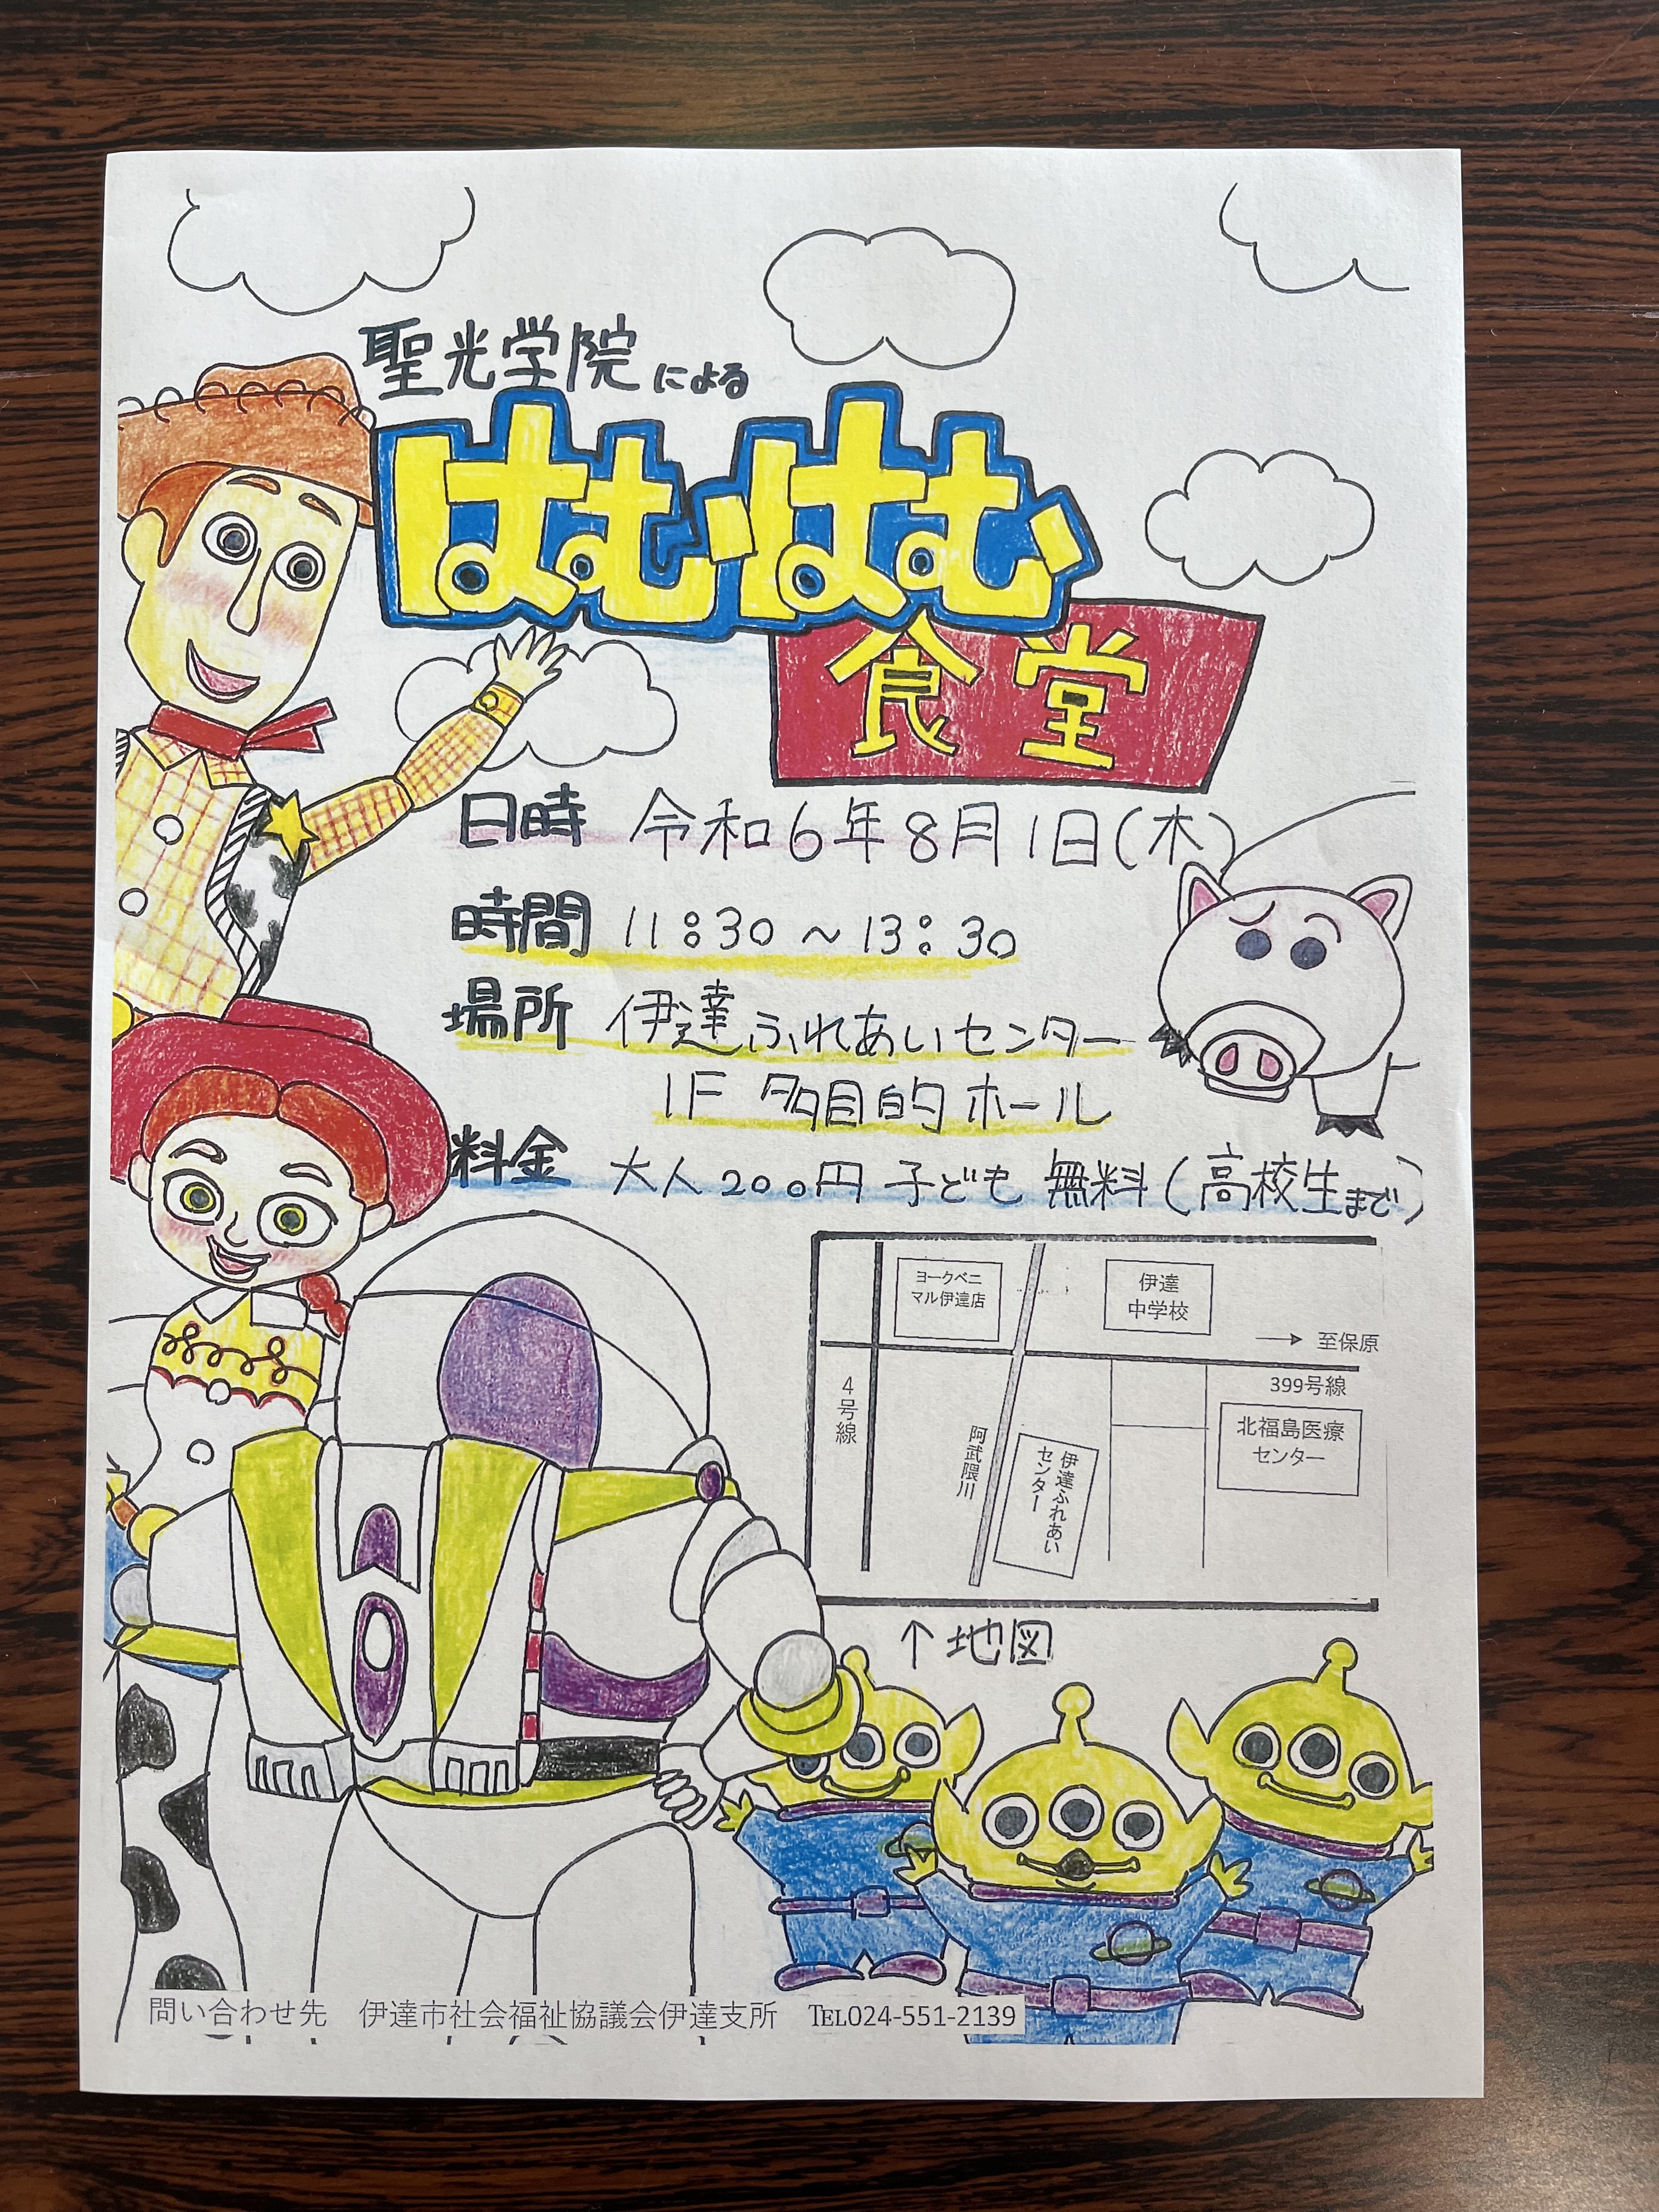 聖光学院による
はむはむ
食堂
日時 令和6年8月1日(木)
時間 11:30~13:30
場所 伊達ふれあいセンター
1F 多目的ホール
料金 大人200円 子ども 無料(高校生まで)
ヨークベニ
マル伊達店
伊達
中学校
→ 至保原
399号線
4号線
阿武隈川
伊達ふれあい
センター
北福島医療
センター
↑地図
問い合わせ先 伊達市社会福祉協議会伊達支所 TEL024-551-2139